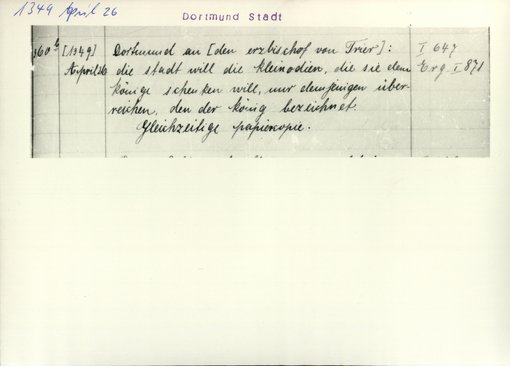 1349 April 26
Dortmund Stadt
360 b [1349] Dortmund an [den erzbischof von Trier]: I 647
April 26 die stadt will die kleinodien, die sie dem Erg. I 871
könige schenken will, nur demjenigen über-
reichen, den der könig bezeichnet.
Gleichzeitige papiercopie.